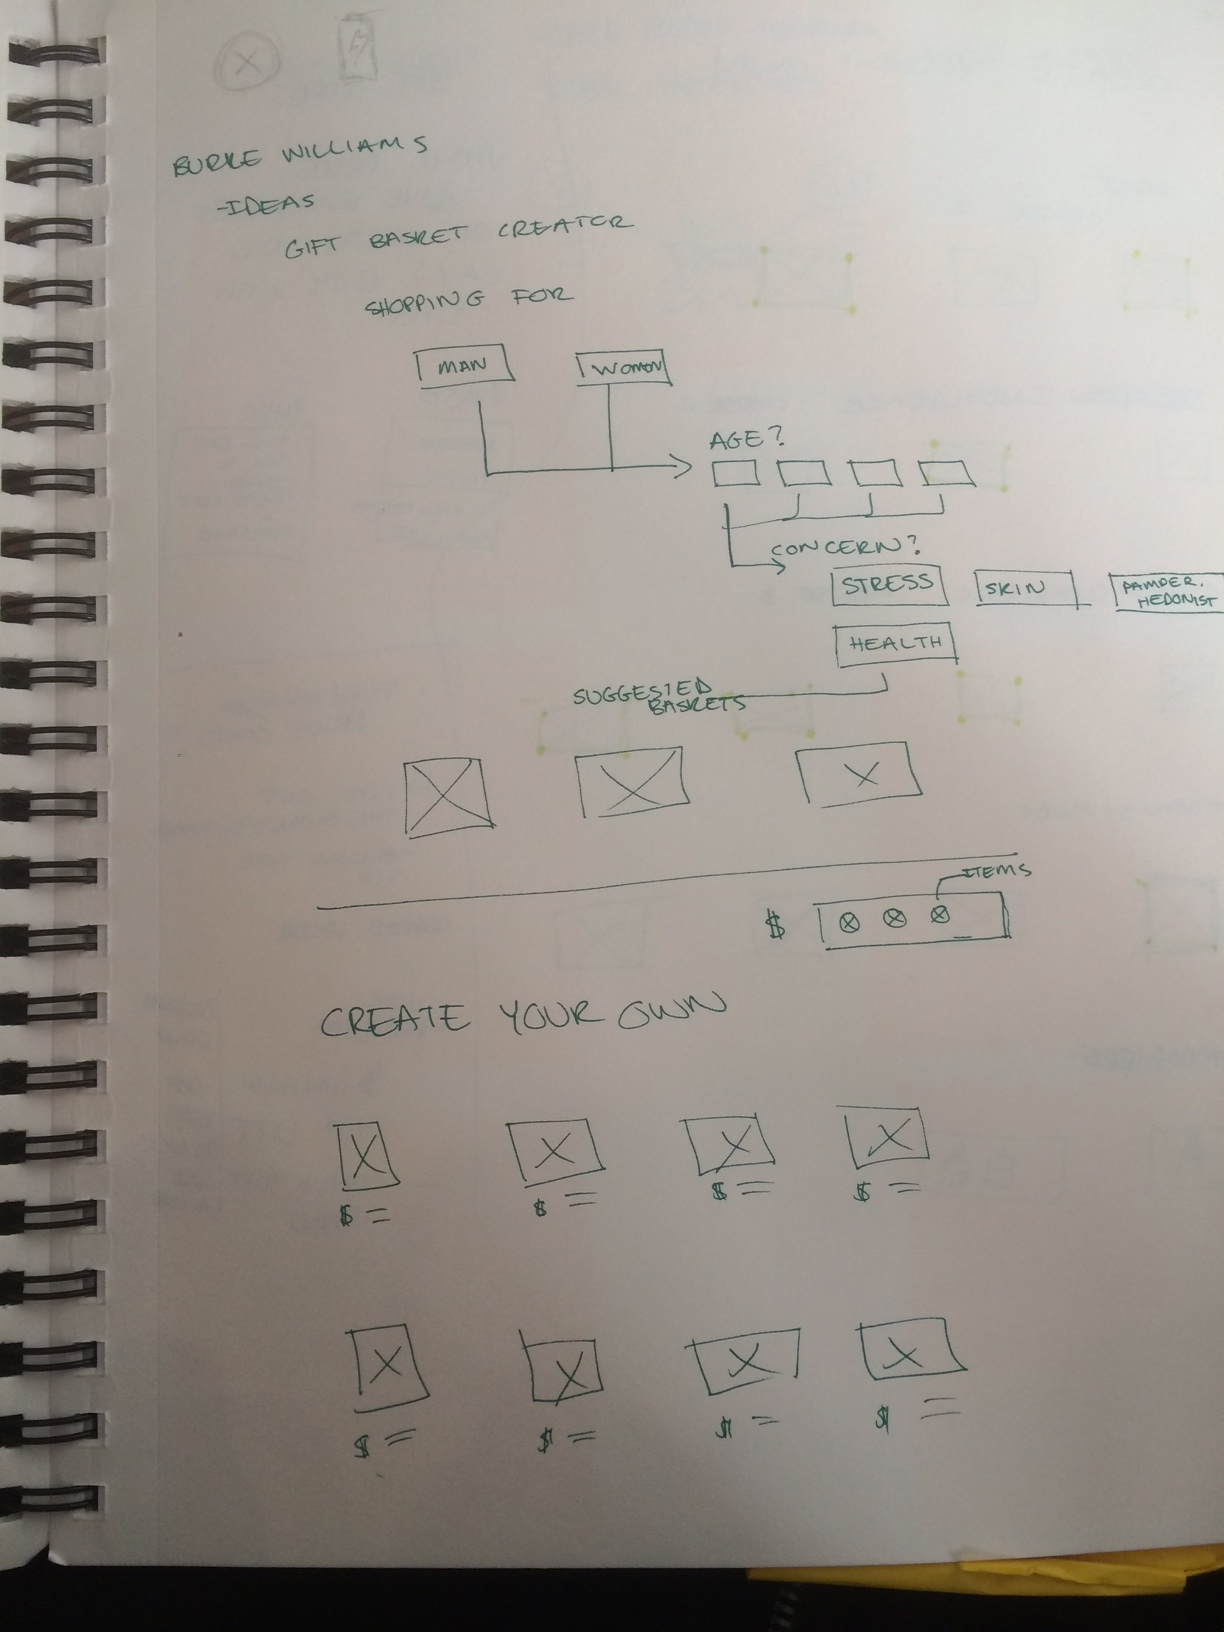 BURKE WILLIAMS
-IDEAS
GIFT BASKET CREATOR
SHOPPING FOR
MAN
WOMEN
AGE?
CONCERN?
STRESS
SKIN
PAMPER.
HEDONIST
HEALTH
SUGGESTED
BASKETS
ITEMS
$
CREATE YOUR OWN
$ $ $ $
$ $ $ $